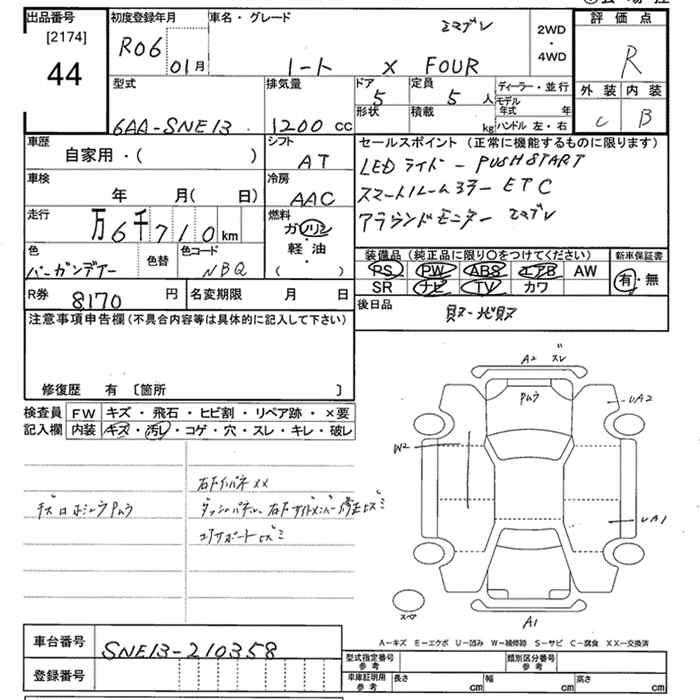 出品番号
[2174]
44
初度登録年月
R06
01月
車名・グレード
ノート X FOUR
2WD
・
4WD
評価点
R
外装 内装
C B
型式
6AA-SNE13
排気量
1200 cc
ドア
5
定員
5 人
形状
積載
kg
ディーラー・並行
モデル
年式 年
ハンドル 左・右
車歴
自家用・( )
シフト
AT
車検
年 月( 日)
冷房
AAC
走行
万6千710km
燃料
ガソリン
軽・油
( )
色
バーガンデアー
色替
色コード
NBQ
R券
8170 円
名変期限 月 日
セールスポイント (正常に機能するものに限ります)
LEDライト ー PUSHSTART
スマートルームミラー ETC
アラウンドモニター
装備品 (純正品に限り○をつけてください)
新車保証書
PS PW ABS エアB AW
SR ナビ TV カワ
有・無
後日品
注意事項申告欄(不具合内容等は具体的に記入して下さい)
修復歴 有 〔箇所 〕
検査員
記入欄
FW キズ・飛石・ヒビ割・リペア跡・×要
内装 キズ・汚レ・コゲ・穴・スレ・キレ・破レ
右Fインパネ XX
ダッシュパネル、右Fサイドメンバー修正ヒズミ
コアサポートヒズミ
A2
ムラ
UA2
W2
UA1
スペア
A1
A-キズ E-エクボ U-凹み W-補修跡 S-サビ C-腐食 XX-交換済
車台番号
SNE13-210358
登録番号
型式指定番号
参考
類別区分番号
参考
車庫証明用
参考
長さ cm
幅 cm
高さ cm